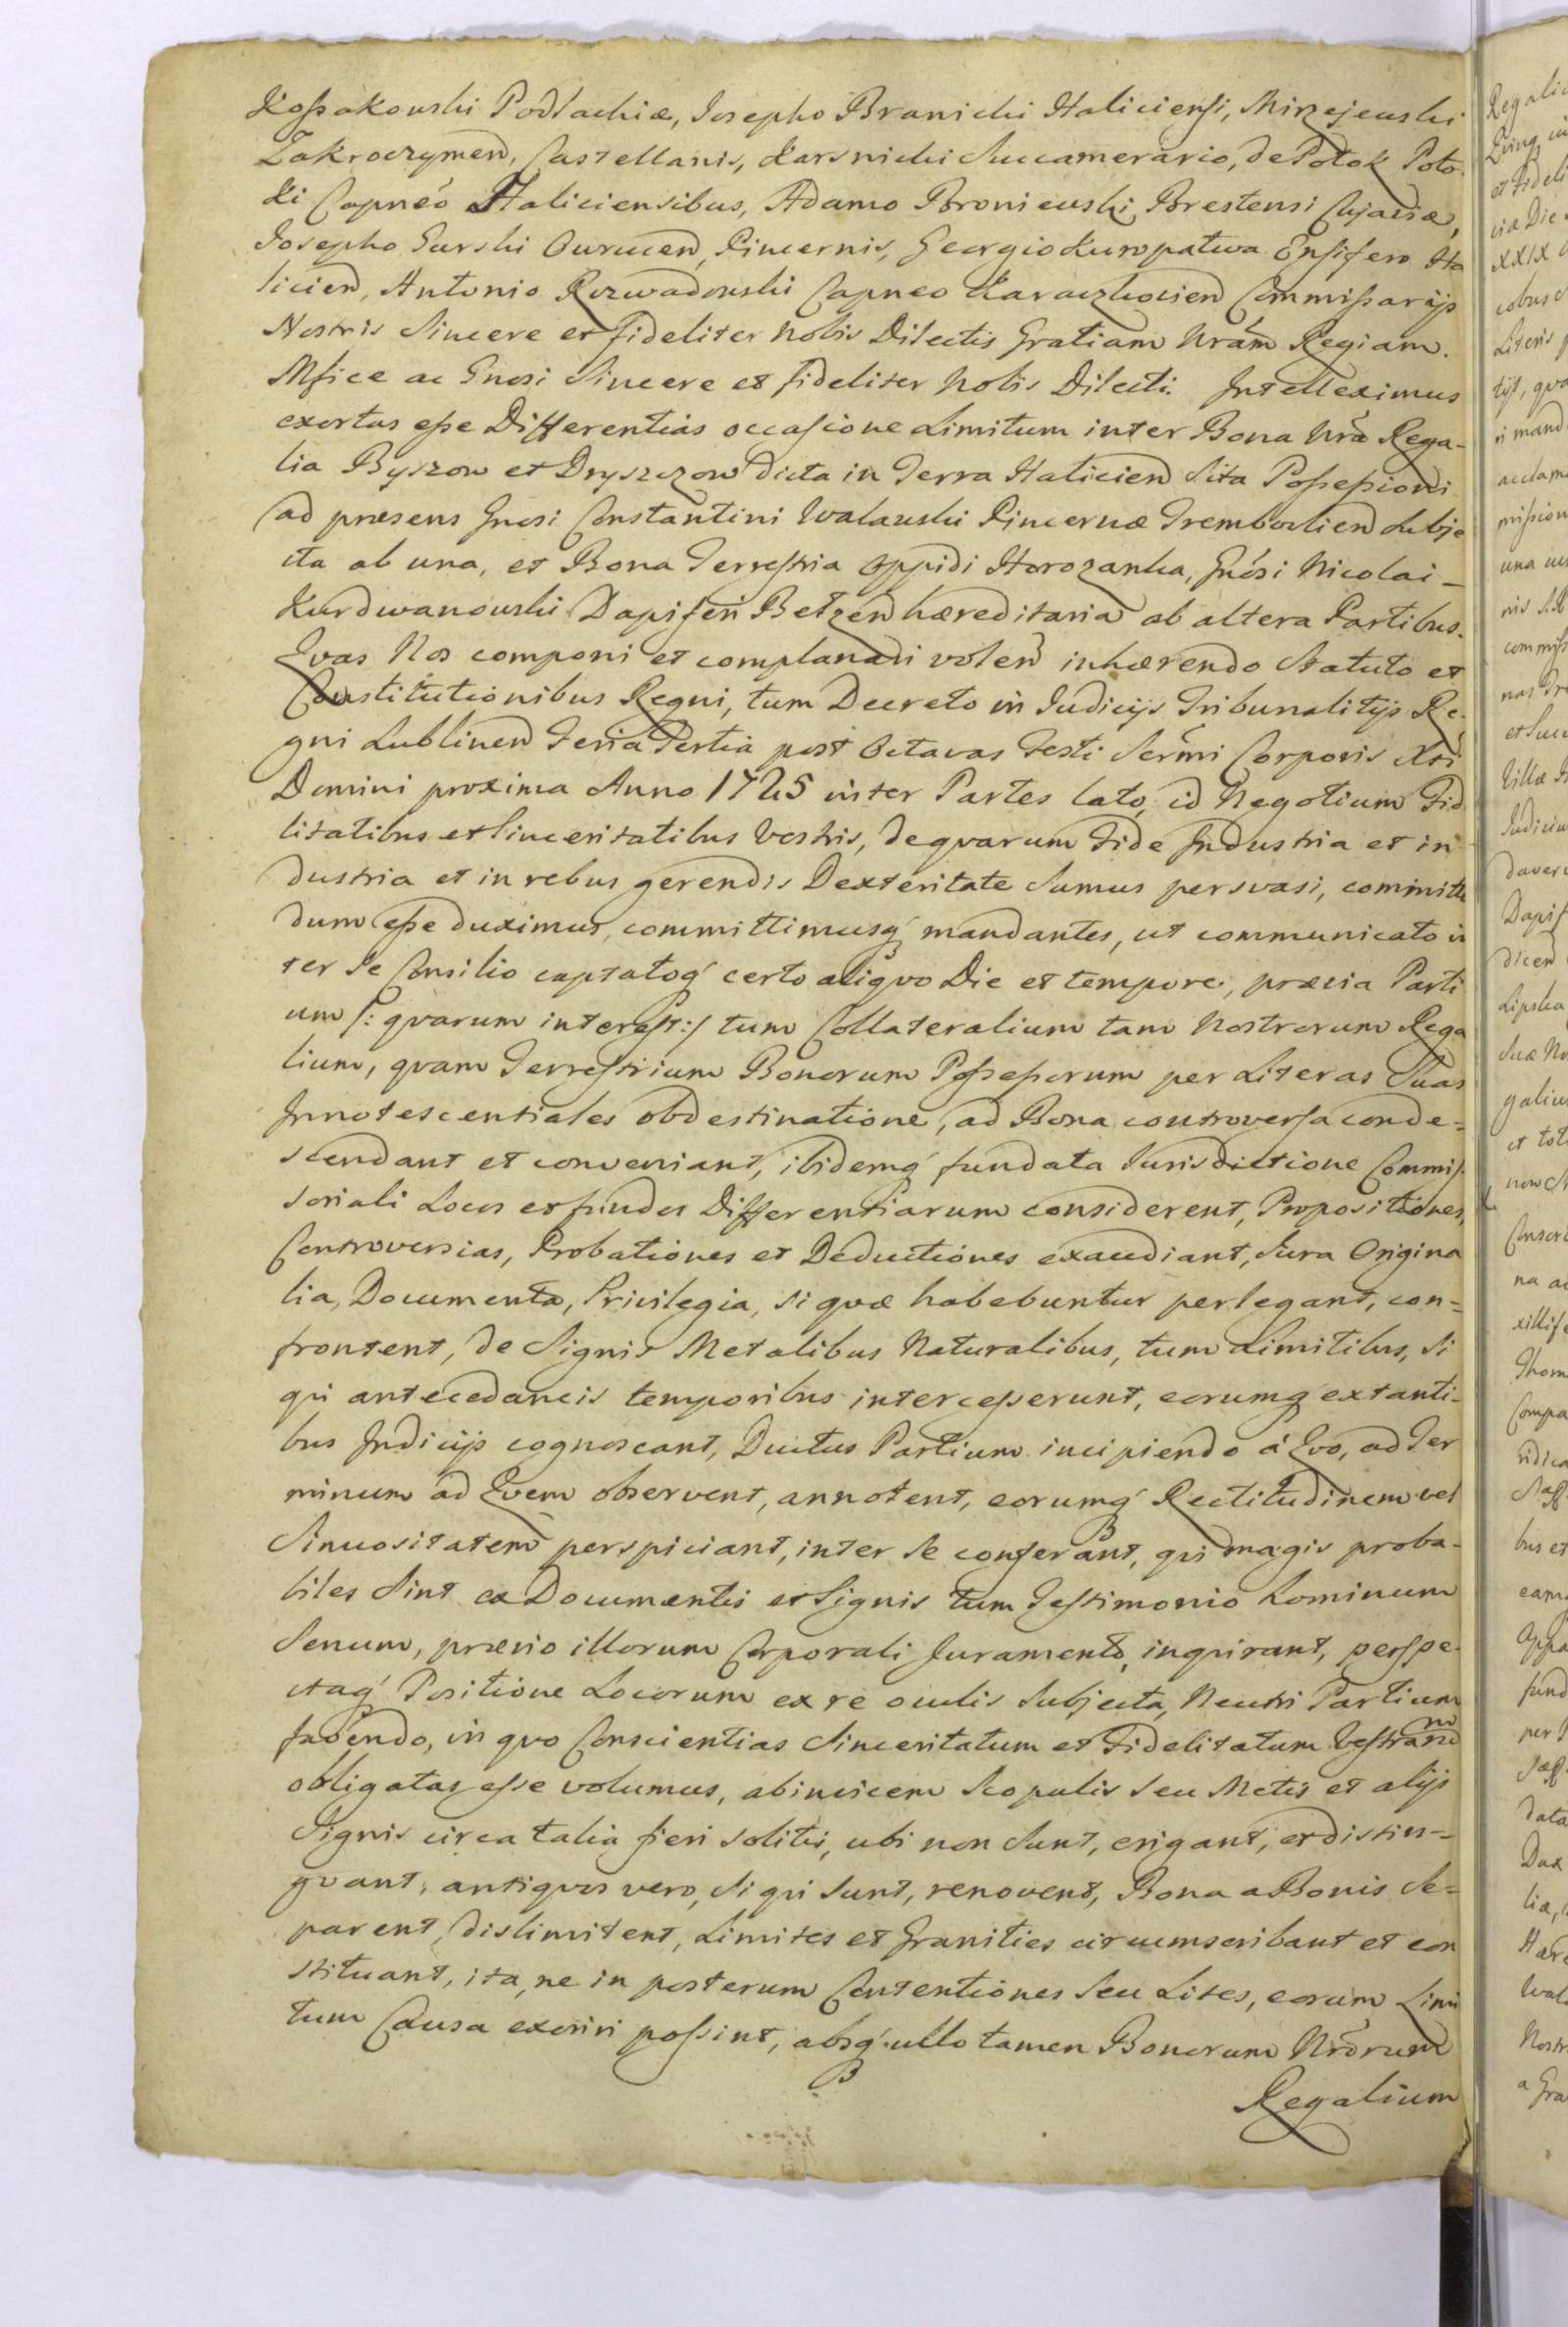 Koßakowski Podlachiæ, Josepho Branicki Haliciensi, Mirzejewski
Zakroczymen̄, Castellanis, Karsnicki Succamerario, de Potok Poto
ki Capneo Haliciensibus, Adamo Broniewski Brestensi Cujaviæ,
Josepho Gurski Ourucen̄, Pincernis, Georgio Kuropatwa Ensifero Ha
licien̄, Antonio Rozwadowski Capneo Karaczkovien̄ Commißarijs
Nostris Sincere et fideliter Nobis Dilectis Gratiam Nrām Regiam.
Mfice ac Gnosi Sincere et fideliter Nobis Dilecti. Intelleximus
exortas eße Differentias occasione Limitum inter Bona Nrā Rega-
lia Byszow et Dryszczow dicta in Terra Halicien̄ Sita Poßeßioni
ad præsens Gnosi Constantini Walawski Pincernæ Trembovlien̄ Subje
cta ab una, et Bona Terrestria Oppidi Horozanka, Gnosi Nicolai -
Kurdwanowski Dapiferi Betzen̄ hæreditaria ab altera Partibus.
Qvas Nos componi et complanari volen̄ inhærendo Statuto et
Constitutionibus Regni, tum Decreto in Judicijs Tribunalitijs Re-
gni Lublinen̄ Feria Tertia post Octavas Festi Sermi Corporis Xti
Domini proxima Anno 1725 inter Partes lato, id Negotium Fid
litatibus et Sinceritatibus Vestris, de qvarum Fide Industria et in
dustria et in rebus gerendis Dexteritate Sumus persvasi, committe
dum eße duximus, committimusq́ mandantes, ut communicato in
ter Se Consilio captatoq́ certo aliqvo Die et tempore, prævia Parti
um /: qvarum interest :/ tum Collateralium tam Nostrorum Rega
lium, qvam Terrestrium Bonorum Poßeßorum per Literas Suas
Innotescentiales obdestinatione, ad Bona controversa conde=
scendant et conveniant, ibidemq́ fundata Jurisdictione Commis-
soriali Locos et fundos Differentiarum considerent, Propositiones,
Controversias, Probationes et Deductiones exaudiant, Jura Origina
lia, Documenta, Privilegia, si qvæ habebuntur perlegant, con=
frontent, de Signis Metalibus Naturalibus, tum Limitibus, Si
qvi antecedaneis temporibus interceßerunt, eorumq́ extanti-
bus Indicijs cognoscant, Ductus Partium incipiendo á Qvo, ad Ter
minum ad Qvem observent, annotent, eorumq́ Rectitudinem vel
Sinuositatem perspiciant, inter Se conferant, qvi magis proba-
biles Sint ex Documentis et Signis tum Testimonio hominum
Senum, prævio illorum Corporali Juramento, inqvirant, perspe-
ctaq́ Positione Locorum ex re oculis Subjecta, Neutri Partium
favendo, in qvo Conscientias Sinceritatum et Fidelitatum Vestrarum
obligatas esse volumus, abinvicem Scopulis Seu Metis et alijs
Signis circa talia fieri solitis, ubi non Sunt, erigant, et distin-
gvant, antiqvos vero, Si qvi Sunt, renovent, Bona a Bonis Se=
parent, dislimitent, Limites et Granities circumscribant et con
stituant, ita, ne in posterum Contentiones Seu Lites, eorum Limi
tum Causa exoriri poßint, absq́ ullo tamen Bonorum Nrōrum
Regalium